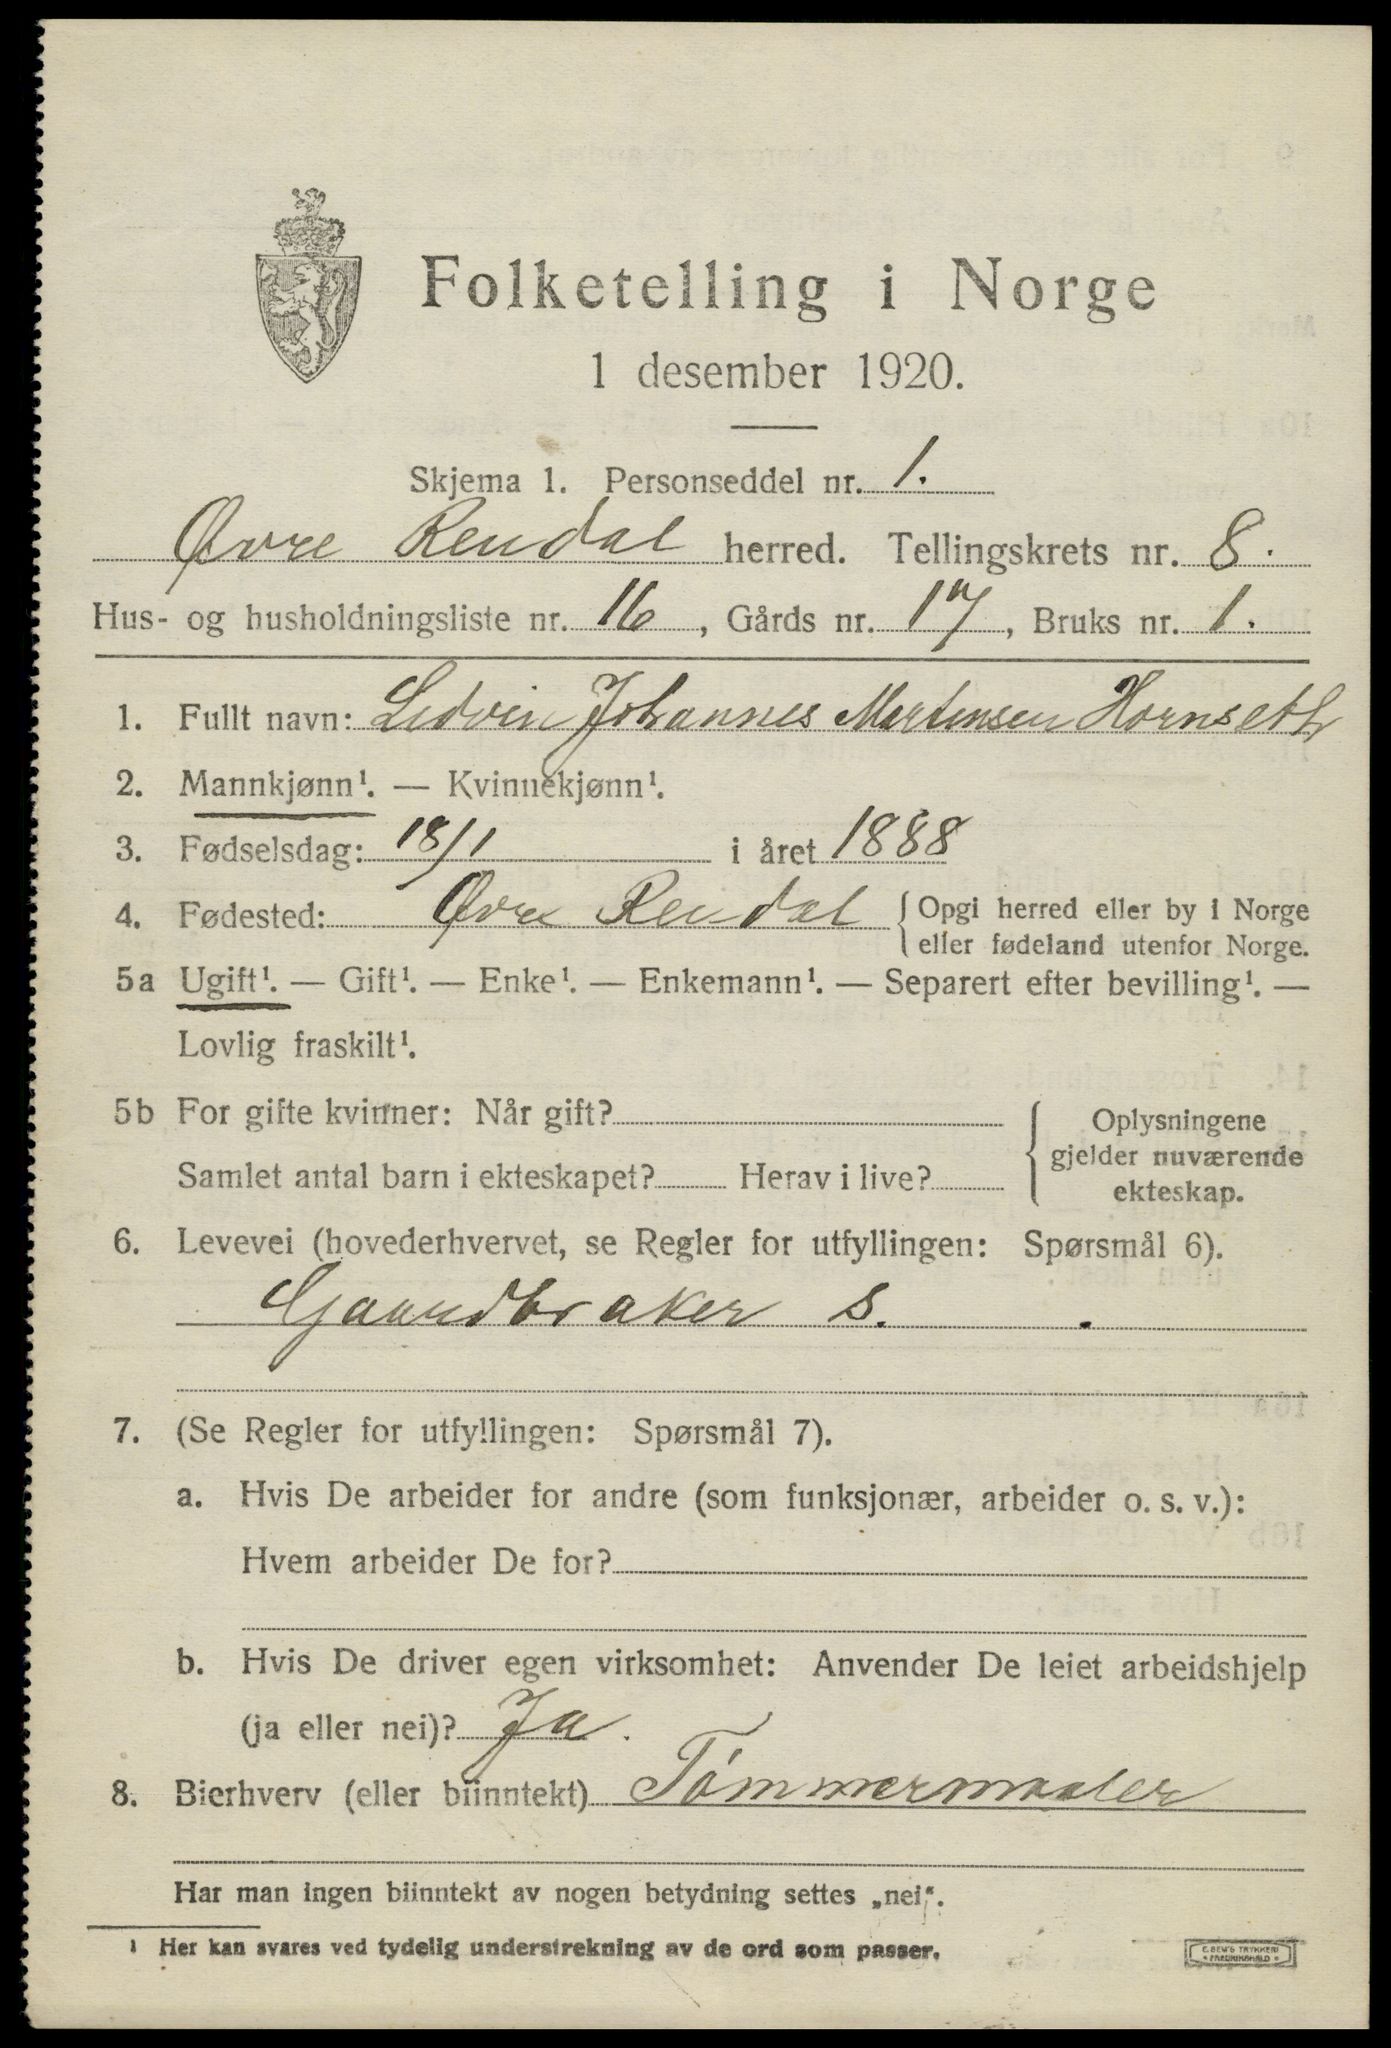 Folketelling i Norge
1 desember 1920.
Skjema 1. Personseddel nr. 1.
Øvre Rendal herred. Tellingskrets nr. 8.
Hus- og husholdningsliste nr. 16, Gårds nr. 17, Bruks nr. 1.
1. Fullt navn: Ledvin Johannes Martinsen Hornseth
2. Mannkjønn¹. — Kvinnekjønn¹.
3. Fødselsdag: 18/1 i året 1888
4. Fødested: Øvre Rendal { Opgi herred eller by i Norge
eller fødeland utenfor Norge.
5a Ugift¹. — Gift¹. — Enke¹. — Enkemann¹. — Separert efter bevilling¹. —
Lovlig fraskilt¹.
5b For gifte kvinner: Når gift?
Samlet antal barn i ekteskapet? Herav i live?
{ Oplysningene
gjelder nuværende
ekteskap.
6. Levevei (hovederhvervet, se Regler for utfyllingen: Spørsmål 6).
Gaardbruker s.
7. (Se Regler for utfyllingen: Spørsmål 7).
a. Hvis De arbeider for andre (som funksjonær, arbeider o. s. v.):
Hvem arbeider De for?
b. Hvis De driver egen virksomhet: Anvender De leiet arbeidshjelp
(ja eller nei)? Ja.
8. Bierhverv (eller biinntekt) Tømmermaaler
Har man ingen biinntekt av nogen betydning settes „nei“.
¹ Her kan svares ved tydelig understrekning av de ord som passer.
E. SEM'S TRYKKERI
FREDRIKSHALD